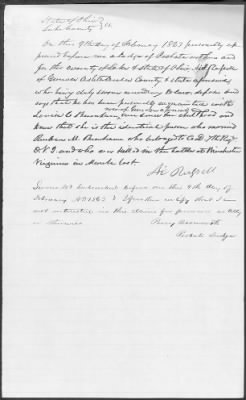 State of Ohio
Lake County } ss
On this 9th day of February 1863 personally ap
peared before me a Judge of Probate in and
for the County of Lake & State of Ohio Russell
of Geneva Ashtabula County & State aforesaid
who being duly sworn according to law deposes and
says that he has been personally acquainted with
Burnham ever since her childhood and
knows that she is the identical person who married
M. Burnham who belonged to Co D 7th Reg
O.V.I. and who was killed in the battle at Winchester
Virginia in March last
Russell
Sworn to & subscribed before me this 9th day of
February AD 1863 & I further certify that I am
not interested in this claim for pension as atty
or otherwise
Perry Bosworth
Probate Judge